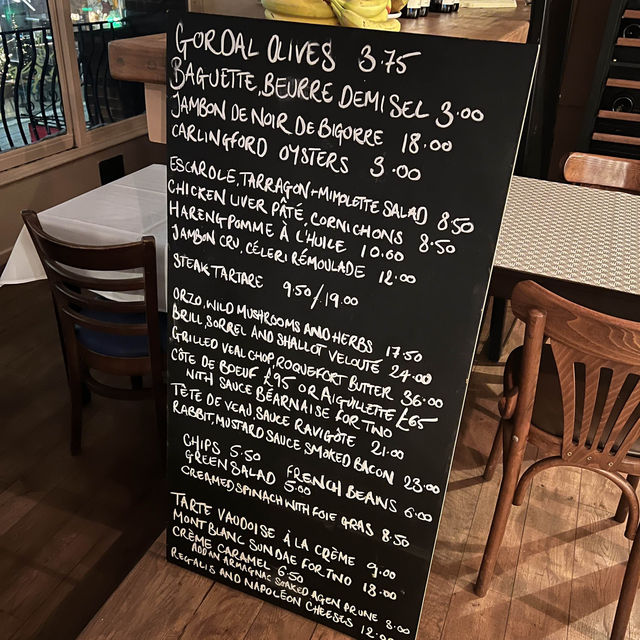 GORDAL OLIVES 3.75
BAGUETTE, BEURRE DEMI SEL 3.00
JAMBON DE NOIR DE BIGORRE 18.00
CARLINGFORD OYSTERS 3.00
ESCAROLE, TARRAGON + MIMOLETTE SALAD 8.50
CHICKEN LIVER PÂTÉ, CORNICHONS 8.50
HARENG POMME À L'HUILE 10.00
JAMBON CRU, CÉLERI RÉMOULADE 12.00
STEAK TARTARE 9.50/19.00
ORZO, WILD MUSHROOMS AND HERBS 17.50
BRILL, SORREL AND SHALLOT VELOUTÉ 24.00
GRILLED VEAL CHOP, ROQUEFORT BUTTER 36.00
CÔTE DE BOEUF £95 OR AIGUILLETTE £65
WITH SAUCE BÉARNAISE FOR TWO
TÊTE DE VEAU, SAUCE RAVIGÔTE 21.00
RABBIT, MUSTARD SAUCE SMOKED BACON 23.00
CHIPS 5.50 FRENCH BEANS 6.00
GREEN SALAD 5.00
CREAMED SPINACH WITH FOIE GRAS 8.50
TARTE VAUDOISE À LA CRÈME 9.00
MONT BLANC SUNDAE FOR TWO 18.00
CRÈME CARAMEL 6.50
ADD AN ARMAGNAC SOAKED AGEN PRUNE 3.00
REGALIS AND NAPOLÉON CHEESES 12.00